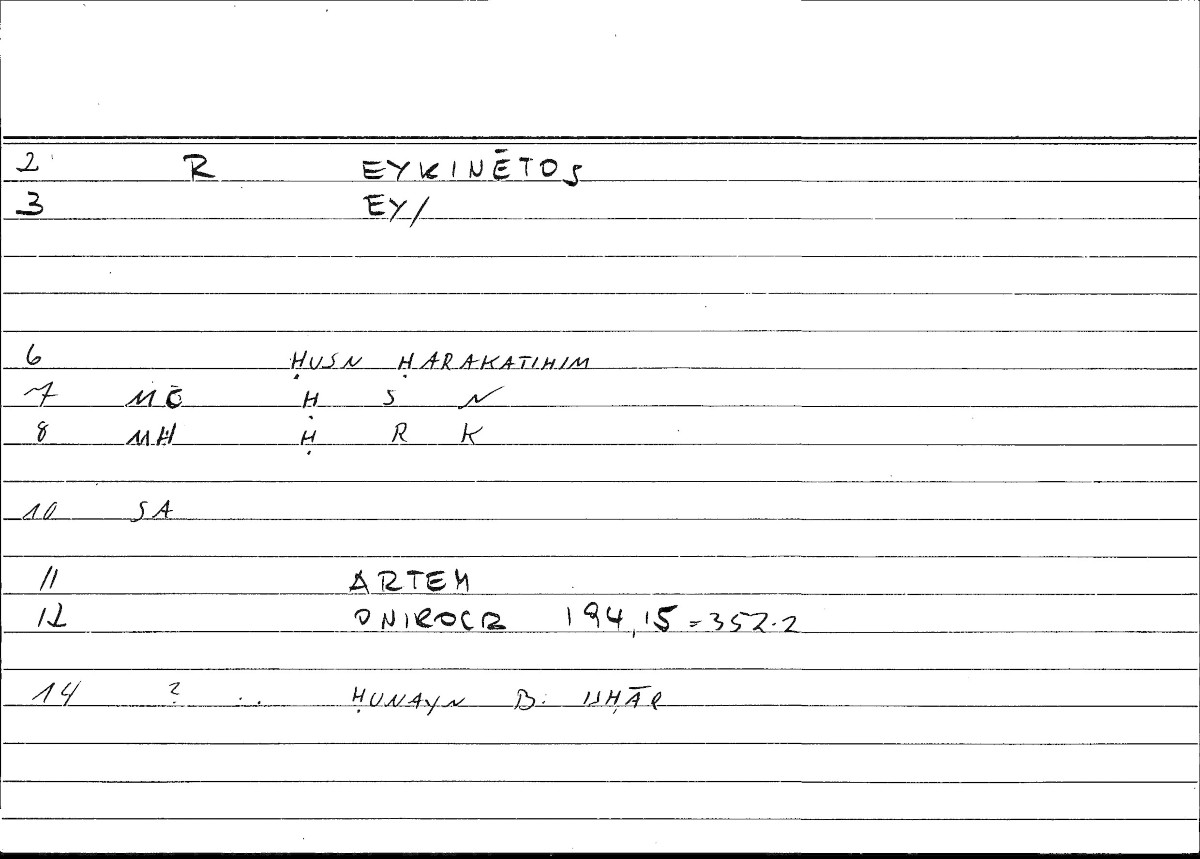 2 R EYKINĒTOS
3 EY/
6 ḤUSN ḤARAKATIHIM
7 MĒ Ḥ S N
8 MH Ḥ R K
10 SA
11 ARTEM
12 ONIROCR 194,15=352.2
14 ? .. ḤUNAYN B. ISḤĀQ